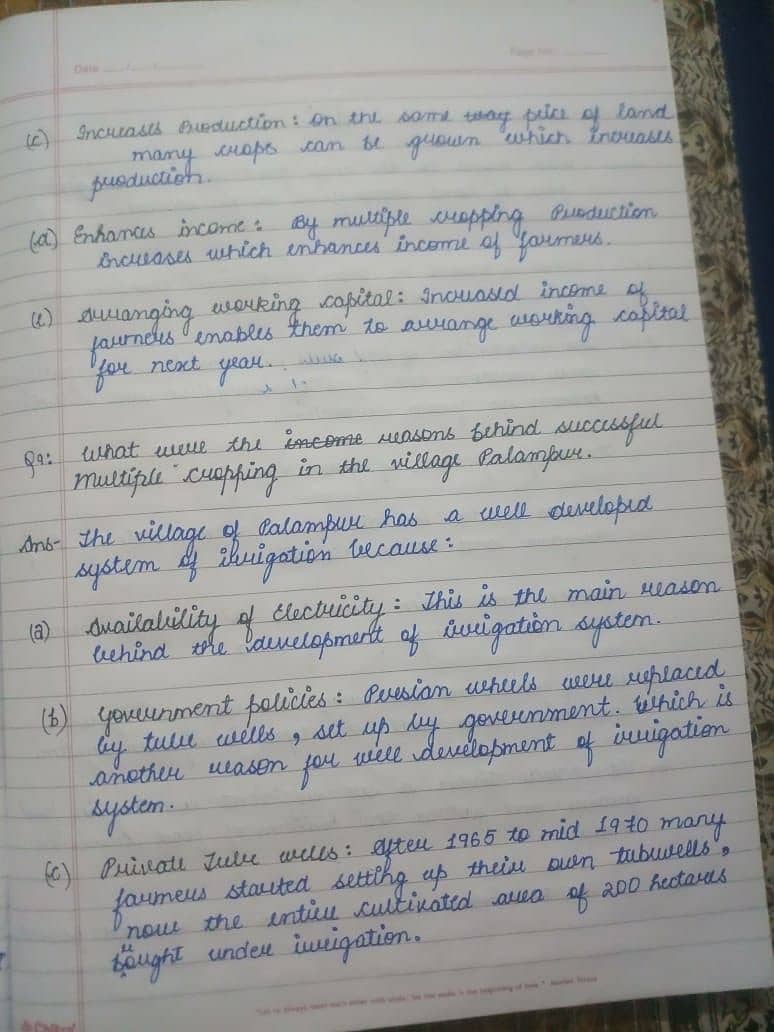 Date
Page No.
(c) Increases Production : on the same way peice of land
many crops can be grown which increases
production.
(d) Enhances income : By multiple cropping Production
increases which enhances income of farmers.
(e) Arranging working capital : Increased income of
farmers enables them to arrange working capital
for next year.
Q9: What were the income reasons behind successful
multiple cropping in the village Palampur.
Ans- The village of Palampur has a well developed
system of irrigation because :
(a) Availability of Electricity : This is the main reason
behind the development of irrigation system.
(b) Government policies : Persian wheels were replaced
by tube wells, set up by government. Which is
another reason for well development of irrigation
system.
(c) Private Tube wells : After 1965 to mid 1970 many
farmers started setting up their own tubwells,
now the entire cultivated area of 200 hectares
bought under irrigation.